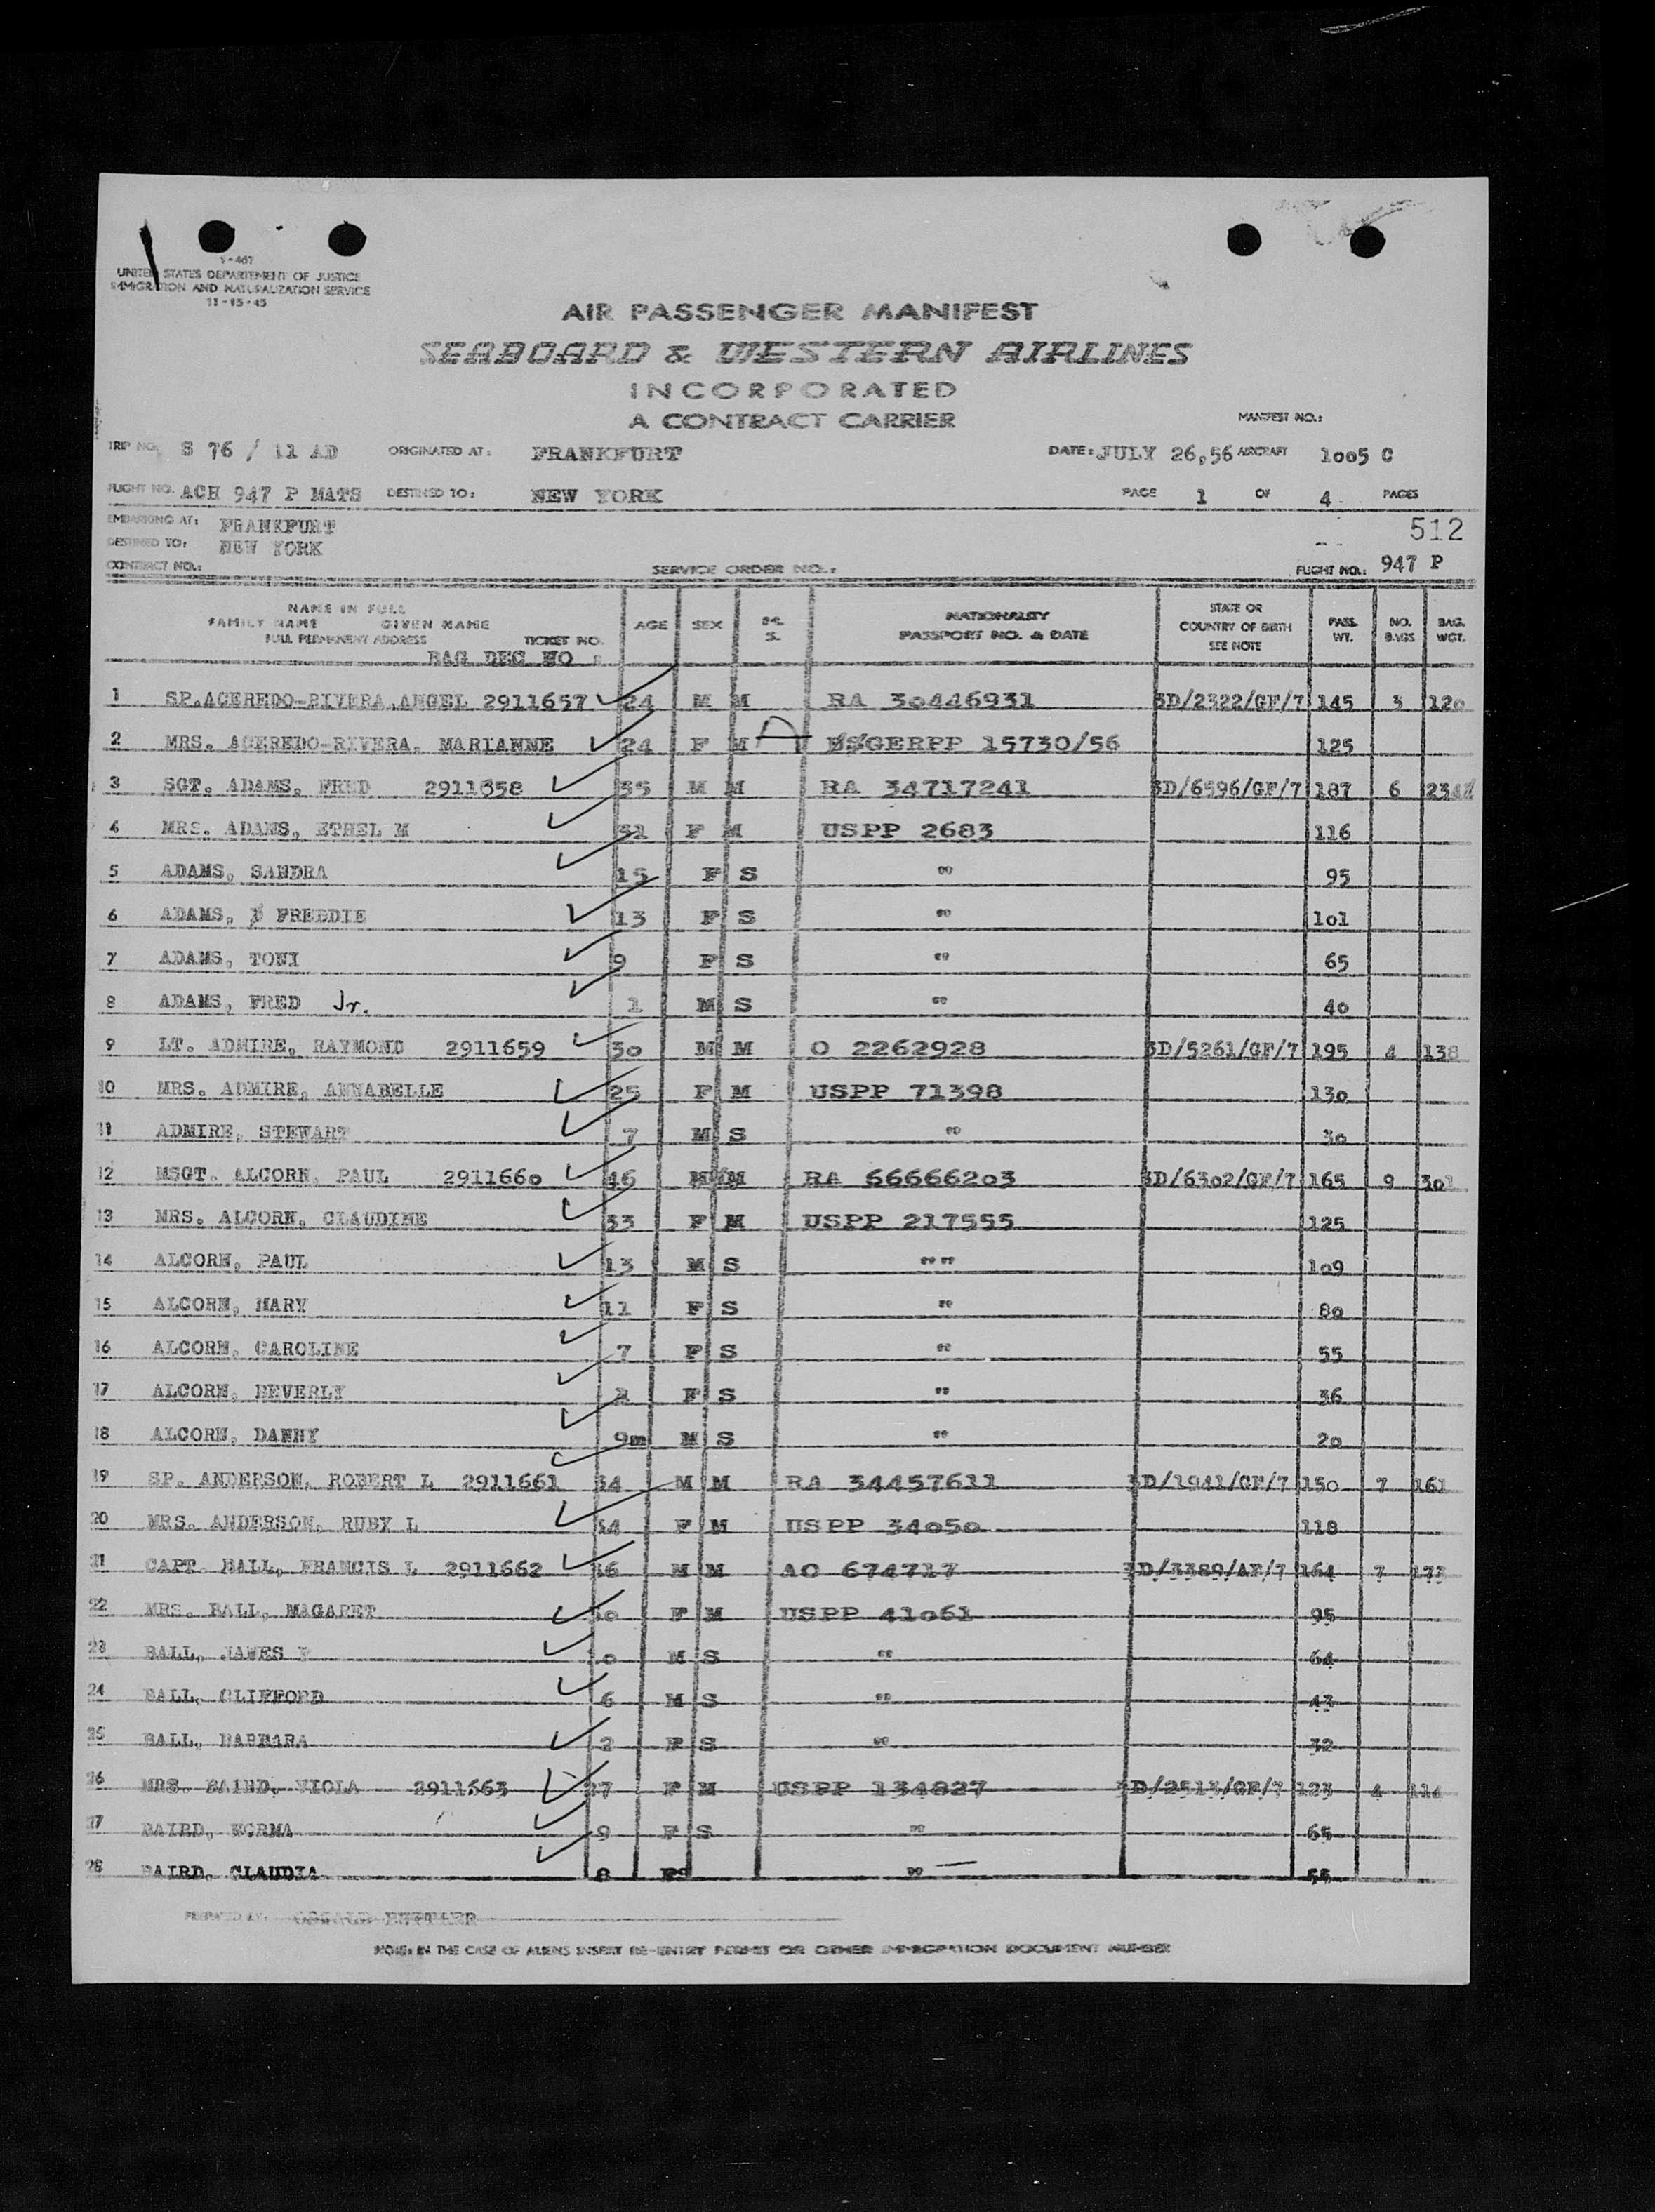 1-467
UNITED STATES DEPARTEMENT OF JUSTICE
IMMIGRATION AND NATURALIZATION SERVICE
11-15-45
AIR PASSENGER MANIFEST
SEABOARD & WESTERN AIRLINES
INCORPORATED
A CONTRACT CARRIER
MANIFEST NO.:
TRIP NO. S 76 / 11 AD ORIGINATED AT: FRANKFURT DATE: JULY 26,56 AIRCRAFT 1005 C
FLIGHT NO. ACH 947 P MATS DESTINED TO: NEW YORK PAGE 1 OF 4 PAGES
EMBARKING AT: FRANKFURT 512
DESTINED TO: NEW YORK
CONTRACT NO.: SERVICE ORDER NO.: FLIGHT NO.: 947 P
NAME IN FULL
FAMILY NAME GIVEN NAME
FULL PERMANENT ADDRESS TICKET NO.
BAG DEC NO :
AGE SEX M. S. NATIONALITY PASSPORT NO. & DATE STATE OR COUNTRY OF BIRTH SEE NOTE PASS. WT. NO. BAGS BAG. WGT.
1 SP.ACEREDO-RIVERA,ANGEL 2911657 24 M M RA 30446931 3D/2322/GF/7 145 3 120
2 MRS. ACEREDO-RIVERA. MARIANNE 24 F M A GERPP 15730/56 125
3 SGT. ADAMS, FRED 2911658 35 M M RA 34717241 3D/6596/GF/7 187 6 234
4 MRS. ADAMS, ETHEL M 31 F M USPP 2683 116
5 ADAMS, SANDRA 15 F S " 95
6 ADAMS, FREDDIE 13 F S " 101
7 ADAMS, TONI 9 F S " 65
8 ADAMS, FRED Jr. 1 M S " 40
9 LT. ADMIRE, RAYMOND 2911659 30 M M O 2262928 3D/5261/GF/7 195 4 138
10 MRS. ADMIRE, ANNABELLE 25 F M USPP 71398 130
11 ADMIRE, STEWART 7 M S " 30
12 MSGT. ALCORN, PAUL 2911660 46 M M RA 66666203 3D/6302/GF/7 165 9 301
13 MRS. ALCORN, CLAUDINE 33 F M USPP 217555 125
14 ALCORN, PAUL 13 M S "" 109
15 ALCORN, MARY 11 F S " 80
16 ALCORN, CAROLINE 7 F S " 55
17 ALCORN, BEVERLY F S " 36
18 ALCORN, DANNY 9m M S " 20
19 SP. ANDERSON, ROBERT L 2911661 34 M M RA 34457611 3D/1941/GF/7 150 7 161
20 MRS. ANDERSON, RUBY L 34 F M USPP 34050 118
21 CAPT. BALL, FRANCIS L 2911662 36 M M AO 674717 3D/3389/AF/7 164 7 173
22 MRS. BALL, MAGARET 30 F M USPP 41061 95
23 BALL, JAMES M S " 64
24 BALL, CLIFFORD 6 M S " 43
25 BALL, BARBARA 2 F S " 32
26 MRS. BAIRD, VIOLA 2911663 27 F M USPP 134827 3D/2513/GF/7 123 4 114
27 BAIRD, NORMA 9 F S " 65
28 BAIRD, CLAUDIA 8 FS " 55
PREPARED BY:
NOTE: IN THE CASE OF ALIENS INSERT RE-ENTRY PERMIT OR OTHER IMMIGRATION DOCUMENT NUMBER